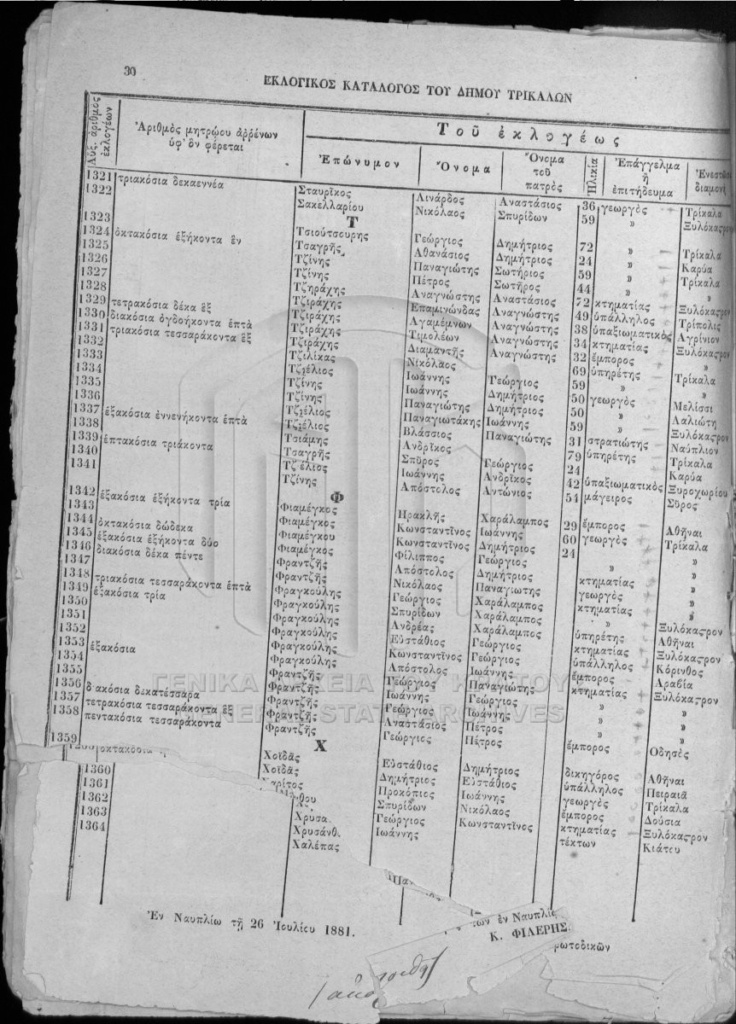 30
ΕΚΛΟΓΙΚΟΣ ΚΑΤΑΛΟΓΟΣ ΤΟΥ ΔΗΜΟΥ ΤΡΙΚΑΛΩΝ
Αὔξ. ἀριθμὸς ἐκλογέων
Ἀριθμὸς μητρῴου ἀρρένων ὑφ' ὃν φέρεται
Τοῦ ἐκλογέως
Ἐπώνυμον Ὄνομα Ὄνομα τοῦ πατρὸς Ἡλικία Ἐπάγγελμα ἢ ἐπιτήδευμα
1321 τριακόσια δεκαεννέα Σταυρῖκος Λινάρδος Ἀναστάσιος 36 γεωργὸς Τρίκαλα
1322 Σακελλαρίου Νικόλαος Σπυρίδων 59 » Ξυλόκαςρον
Τ
1323 Τσιούτσουρης Γεώργιος Δημήτριος 72 » Τρίκαλα
1324 ὀκτακόσια ἑξήκοντα ἓν Τσαγρῆς Ἀθανάσιος Δημήτριος 24 » Καρύα
1325 Τζίνης Παναγιώτης Σωτήριος 59 » Τρίκαλα
1326 Τζίνης Πέτρος Σωτῆρος 44 » »
1327 Τζηράχης Ἀναγνώστης Ἀναστάσιος 72 κτηματίας Ξυλόκαςρον
1328 Τζιράχης Ἐπαμινώνδας Ἀναγνώστης 49 ὑπάλληλος Τρίπολις
1329 τετρακόσια δέκα ἓξ Τζιράχης Ἀγαμέμνων Ἀναγνώστης 38 ὑπαξιωματικὸς Ἀγρίνιον
1330 διακόσια ὀγδοήκοντα ἑπτὰ Τζιράχης Τιμολέων Ἀναγνώστης 34 κτηματίας Ξυλόκαςρον
1331 τριακόσια τεσσαράκοντα ἓξ Τζιράχης Διαμαντῆς Ἀναγνώστης 32 ἔμπορος »
1332 Τζιλίκας Νικόλαος 69 ὑπηρέτης Τρίκαλα
1333 Τζιέλιος Ἰωάννης Γεώργιος 59 » »
1334 Τζίνης Ἰωάννης Δημήτριος 50 γεωργὸς Μελίσσι
1335 Τζίνης Παναγιώτης Δημήτριος 50 » Λαλιώτη
1336 Τζιέλιος Παναγιωτάκης Ἰωάννης 59 » Ξυλόκαςρον
1337 ἑξακόσια ἐννενήκοντα ἑπτὰ Τζιέλιος Βλάσσιος Παναγιώτης 31 στρατιώτης Ναύπλιον
1338 Τσιάμης Ἀνδρῖκος 79 ὑπηρέτης Τρίκαλα
1339 ἑπτακόσια τριάκοντα Τσαγρῆς Σπῦρος Γεώργιος 24 Καρύα
1340 Τζιέλιος Ἰωάννης Ἀνδρῖκος 42 ὑπαξιωματικὸς Ξυροχωρίου
1341 Τζίνης Ἀπόστολος Ἀντώνιος 54 μάγειρος Σῦρος
Φ
1342 ἑξακόσια ἑξήκοντα τρία Φιαμέγκος Ηρακλῆς Χαράλαμπος 29 ἔμπορος Ἀθῆναι
1343 Φιαμέγκος Κωνσταντῖνος Ἰωάννης 60 γεωργὸς Τρίκαλα
1344 ὀκτακόσια δώδεκα Φιαμέγκου Κωνσταντῖνος Δημήτριος 24 »
1345 ἑξακόσια ἑξήκοντα δύο Φιαμέγκος Φίλιππος Γεώργιος » »
1346 διακόσια δέκα πέντε Φραντζῆς Ἀπόστολος Δημήτριος κτηματίας »
1347 Φραντζῆς Νικόλαος Παναγιωτης γεωργὸς »
1348 τριακόσια τεσσαράκοντα ἑπτὰ Φραγκούλης Γεώργιος Χαράλαμπος κτηματίας »
1349 ἑξακόσια τρία Φραγκούλης Σπυρίδων Χαράλαμπος » Ξυλόκαςρον
1350 Φραγκούλης Ἀνδρέας Χαράλαμπος ὑπηρέτης Ἀθῆναι
1351 Φραγκούλης Εὐστάθιος Γεώργιος κτηματίας Ξυλόκαςρον
1352 Φραγκούλης Κωνσταντῖνος Γεώργιος ὑπάλληλος Κόρινθος
1353 ἑξακόσια Φραγκούλης Ἀπόστολος Ἰωάννης ἔμπορος Ἀραβία
1354 Φραντζῆς Γεώργιος Παναγιώτης κτηματίας Ξυλόκαςρον
1355 Φραντζῆς Ἰωάννης Γεώργιος » »
1356 διακόσια δεκατέσσαρα Φραντζῆς Γεώργιος Ἰωάννης » »
1357 τετρακόσια τεσσαράκοντα ἓξ Φραντζῆς Ἀναστάσιος Πέτρος » »
1358 πεντακόσια τεσσαράκοντα Φραντζῆς Γεώργιος Πέτρος ἔμπορος Ὀδησὲς
Χ
1359 ὀκτακόσια Χοϊδᾶς Εὐστάθιος Δημήτριος δικηγόρος Ἀθῆναι
1360 Χοϊδᾶς Δημήτριος Εὐστάθιος ὑπάλληλος Πειραιᾶ
1361 Προκόπιος Ἰωάννης γεωργὸς Τρίκαλα
1362 Σπυρίδων Νικόλαος ἔμπορος Δούσια
1363 Χρυσάνθ. Γεώργιος Κωνσταντῖνος κτηματίας Ξυλόκαςρον
1364 Χαλέπας Ἰωάννης τέκτων Κιάτου
ΓΕΝΙΚΑ ΑΡΧΕΙΑ ΤΟΥ ΚΡΑΤΟΥΣ
GENERAL STATE ARCHIVES
Ἐν Ναυπλίῳ τῇ 26 Ἰουλίου 1881.
ἐν Ναυπλίῳ
Κ. ΦΙΛΕΡΗΣ.